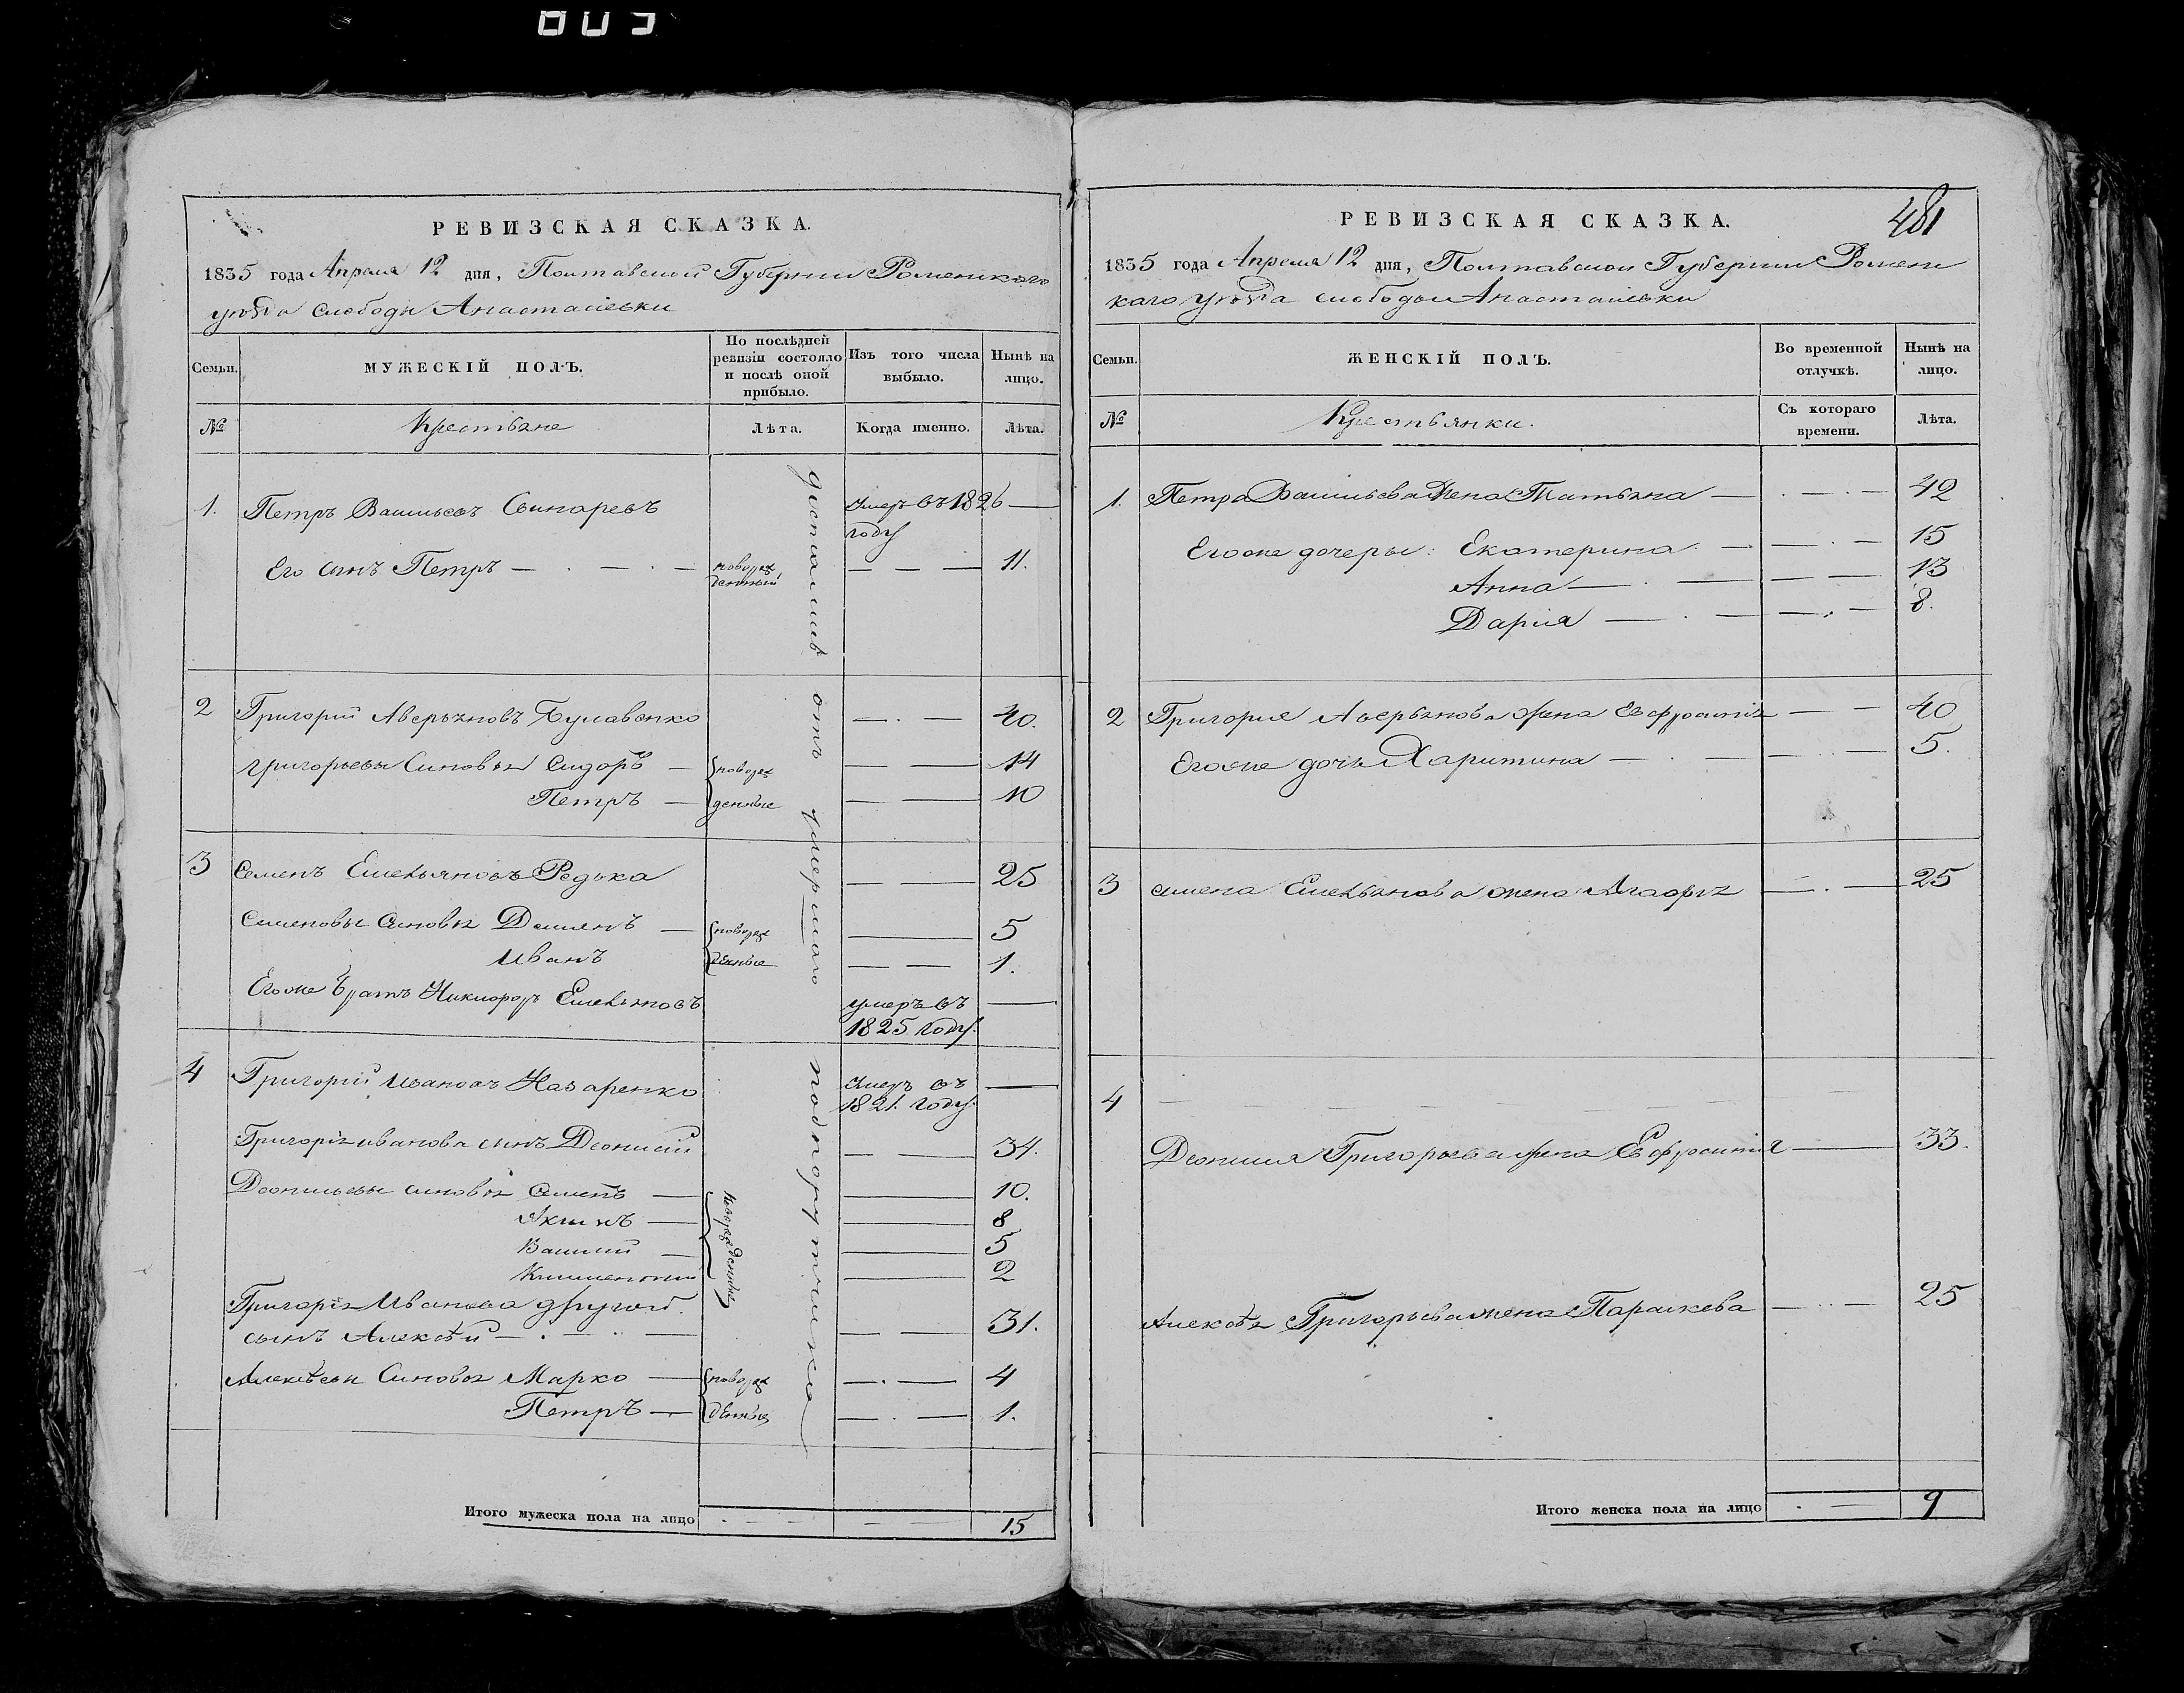 РЕВИЗСКАЯ СКАЗКА.
1835 года Апреля 12 дня, Полтавской Губернии Роменского
уѣзда слободы Анастасіевки
Семьи.
МУЖЕСКІЙ ПОЛЪ.
По послѣдней ревизіи состояло и послѣ оной прибыло.
Изъ того числа выбыло.
Нынѣ на лицо.
№
Крестьяне
Лѣта.
Когда именно.
Лѣта.
достались отъ умершаго подпорутчика
1. Петръ Васильевъ Свинаревъ умеръ въ 1826 —
году
Его сынъ Петръ — новорож 11.
денный
2 Григорій Аверьяновъ Булавенко — 40.
Григорьевы Сыновья Сидоръ — новорож — 14
Петръ — денные — 10
3 Семенъ Емельяновъ Редька — 25
Семеновы Сыновья Демьянъ — новорож — 5
Иванъ денные — 1.
Егоже братъ Никифоръ Емельяновъ умеръ въ —
1825 году.
4 Григорій Ивановъ Назаренко умеръ въ —
1821. году.
Григорія Иванова сынъ Деонисій — 34.
Деонисьевы сыновья Семенъ — новорожденные — 10.
Акимъ — 8
Василий — 5
Климентий 2
Григорія Иванова другой
сынъ Алексѣй — 31.
Алексѣевы Сыновья Марко — новорож — 4
Петръ — денные — 1.
Итого мужеска пола на лицо 15
481
РЕВИЗСКАЯ СКАЗКА.
1835 года Апреля 12 дня, Полтавской Губерніи Ромен
каго уѣзда слободы Анастасіевки
Семьи.
ЖЕНСКІЙ ПОЛЪ.
Во временной отлучкѣ.
Нынѣ на лицо.
№
Крестьянки.
Съ котораго времени.
Лѣта.
1. Петра Васильева Жена Татьяна — 42
Егоже дочеры: Екатерина — 15
Анна — 13
Дарія — 8.
2 Григорие Аверьянова жена Евфросинія — 40
Егоже дочь Харитина — 5.
3 Семена Емельянова жена Агафія — 25
4
Деонисия Григорьева жена Евфросинія — 33.
Алексѣя Григорьева жена Параскева — 25
Итого женска пола на лицо 9